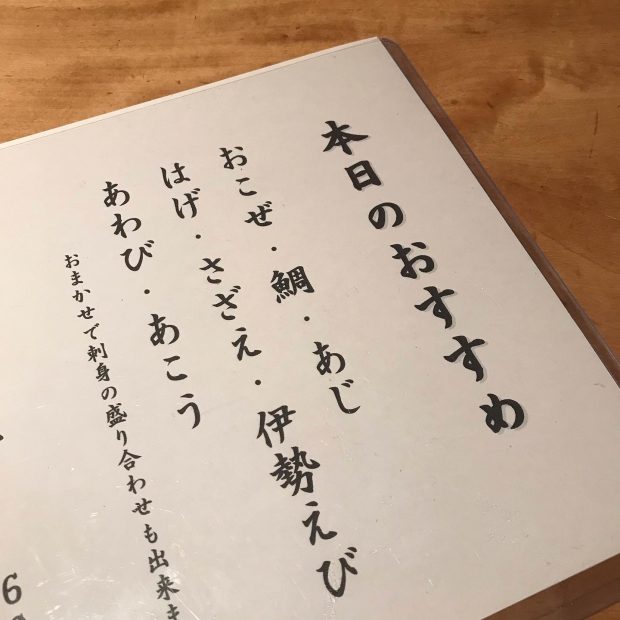 本日のおすすめ
おこぜ・鯛・あじ
はげ・さざえ・伊勢えび
あわび・あこう
おまかせで刺身の盛り合わせも出来ま
6